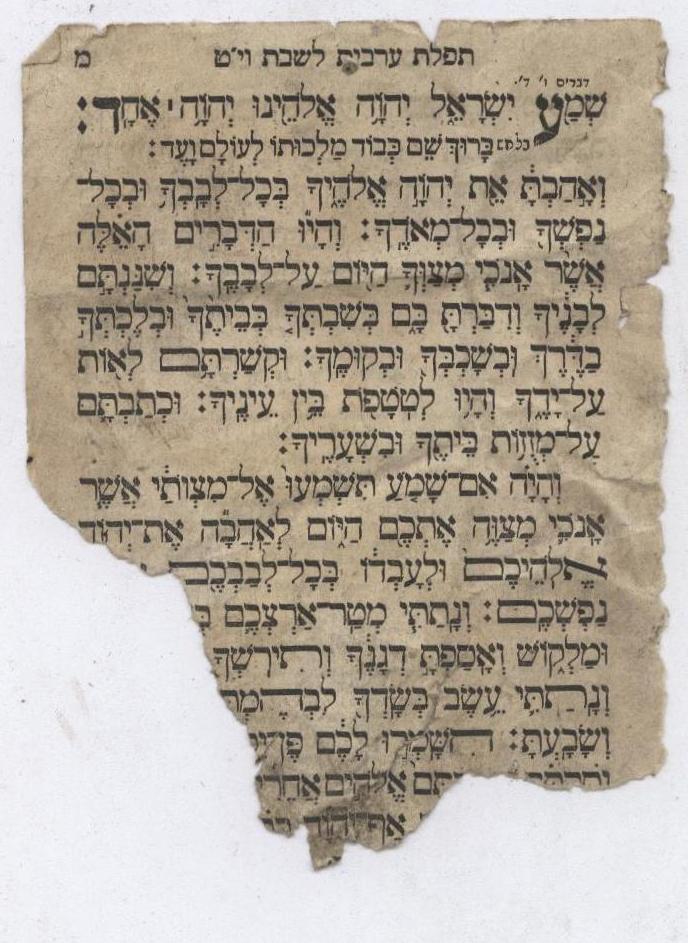 תפלת ערבית לשבת וי״ט מ
דברים ו׳ ד׳.
שְׁמַ֖ע יִשְׂרָאֵ֑ל יְהֹוָ֥ה אֱלֹהֵ֖ינוּ יְהֹוָ֥ה ׀ אֶחָֽד׃
בלחש בָּרוּךְ שֵׁם כְּבוֹד מַלְכוּתוֹ לְעוֹלָם וָעֶד:
וְאָ֣הַבְתָּ֔ אֵ֖ת יְהֹוָ֣ה אֱלֹהֶ֑יךָ בְּכָל־לְבָבְךָ֥ וּבְכָל־
נַפְשְׁךָ֖ וּבְכָל־מְאֹדֶֽךָ׃ וְהָי֞וּ הַדְּבָרִ֣ים הָאֵ֗לֶּה
אֲשֶׁ֨ר אָנֹכִ֧י מְצַוְּךָ֛ הַיּ֖וֹם עַל־לְבָבֶֽךָ׃ וְשִׁנַּנְתָּ֣ם
לְבָנֶ֔יךָ וְדִבַּרְתָּ֖ בָּ֑ם בְּשִׁבְתְּךָ֤ בְּבֵיתֶ֙ךָ֙ וּבְלֶכְתְּךָ֣
בַדֶּ֔רֶךְ וּֽבְשָׁכְבְּךָ֖ וּבְקוּמֶֽךָ׃ וּקְשַׁרְתָּ֥ם לְא֖וֹת
עַל־יָדֶ֑ךָ וְהָי֥וּ לְטֹטָפֹ֖ת בֵּ֥ין עֵינֶֽיךָ׃ וּכְתַבְתָּ֛ם
עַל־מְזֻז֥וֹת בֵּיתֶ֖ךָ וּבִשְׁעָרֶֽיךָ׃
וְהָיָ֗ה אִם־שָׁמֹ֤עַ תִּשְׁמְעוּ֙ אֶל־מִצְוֺתַ֔י אֲשֶׁ֧ר
אָנֹכִ֛י מְצַוֶּ֥ה אֶתְכֶ֖ם הַיּ֑וֹם לְאַהֲבָ֞ה אֶת־יְהוָֹ֤
אֱלֹֽהֵיכֶם֙ וּלְעָבְד֔וֹ בְּכָל־לְבַבְכֶ֖ם
נַפְשְׁכֶֽם׃ וְנָתַתִּ֧י מְטַֽר־אַרְצְכֶ֛ם
וּמַלְק֑וֹשׁ וְאָסַפְתָּ֣ דְגָנֶ֔ךָ וְתִֽירֹשְׁךָ֖
וְנָתַתִּ֛י עֵ֥שֶׂב בְּשָׂדְךָ֖ לִבְהֶמְתֶּ
וְשָׂבָֽעְתָּ׃ הִשָּֽׁמְר֣וּ לָכֶ֔ם פֶּן־יִ
אֱלֹהִ֣ים אֲחֵרִ֔י
אַף־יְהוָֹ֜